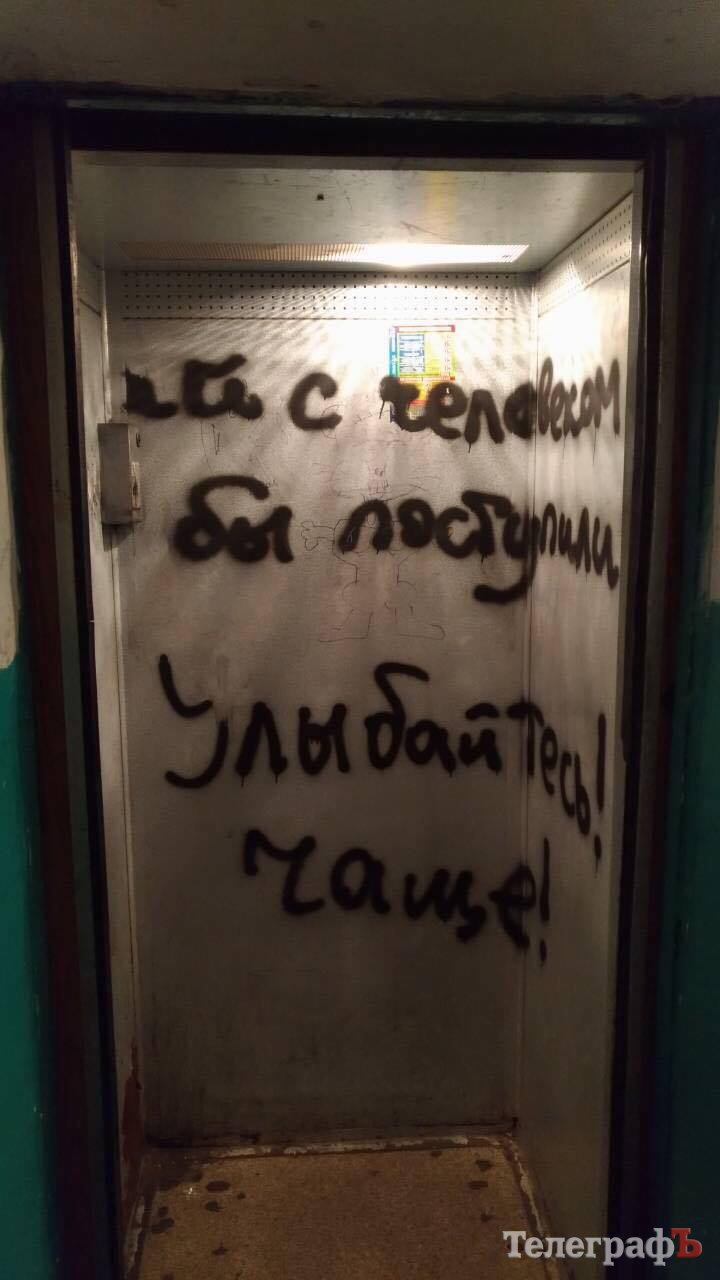 с человеком
бы поступили
Улыбайтесь!
чаще!
ТелеграфЪ